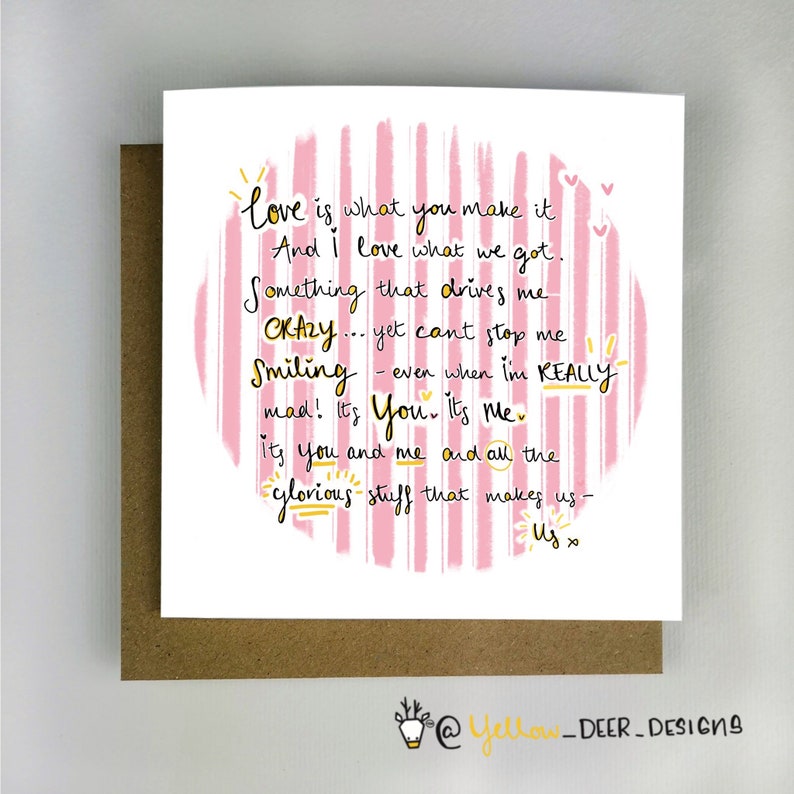 Love is what you make it
And i love what we got.
Something that drives me
CRAZY... yet cant stop me
Smiling - even when i'm REALLY
mad! Its You. Its Me.
its you and me and all the
glorious stuff that makes us -
Us x
@Yellow_DEER_DESIGNS